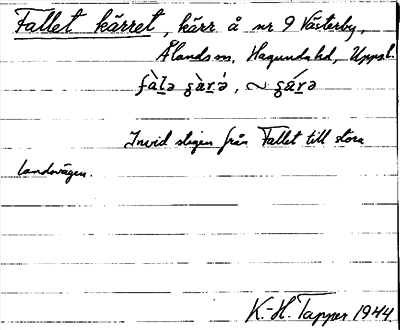 Fallet kärret, kärr å nr 9 Västerby,
Ålands sn, Hagunda hd, Uppsl.
fàlə şàrə́, ~ şárə
Invid stigen från Fallet till stora
landsvägen.
K.-H. Tapper 1944